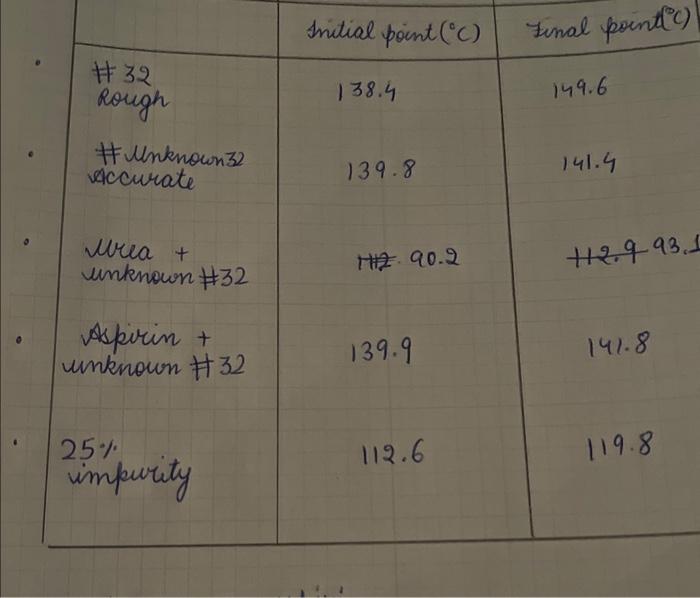 Initial point (°C) Final point (°C)
# 32
Rough 138.4 149.6
# Unknown 32
Accurate 139.8 141.4
Urea +
unknown #32 90.2 112.9 93.1
Aspirin +
unknown # 32 139.9 141.8
25%
impurity 112.6 119.8